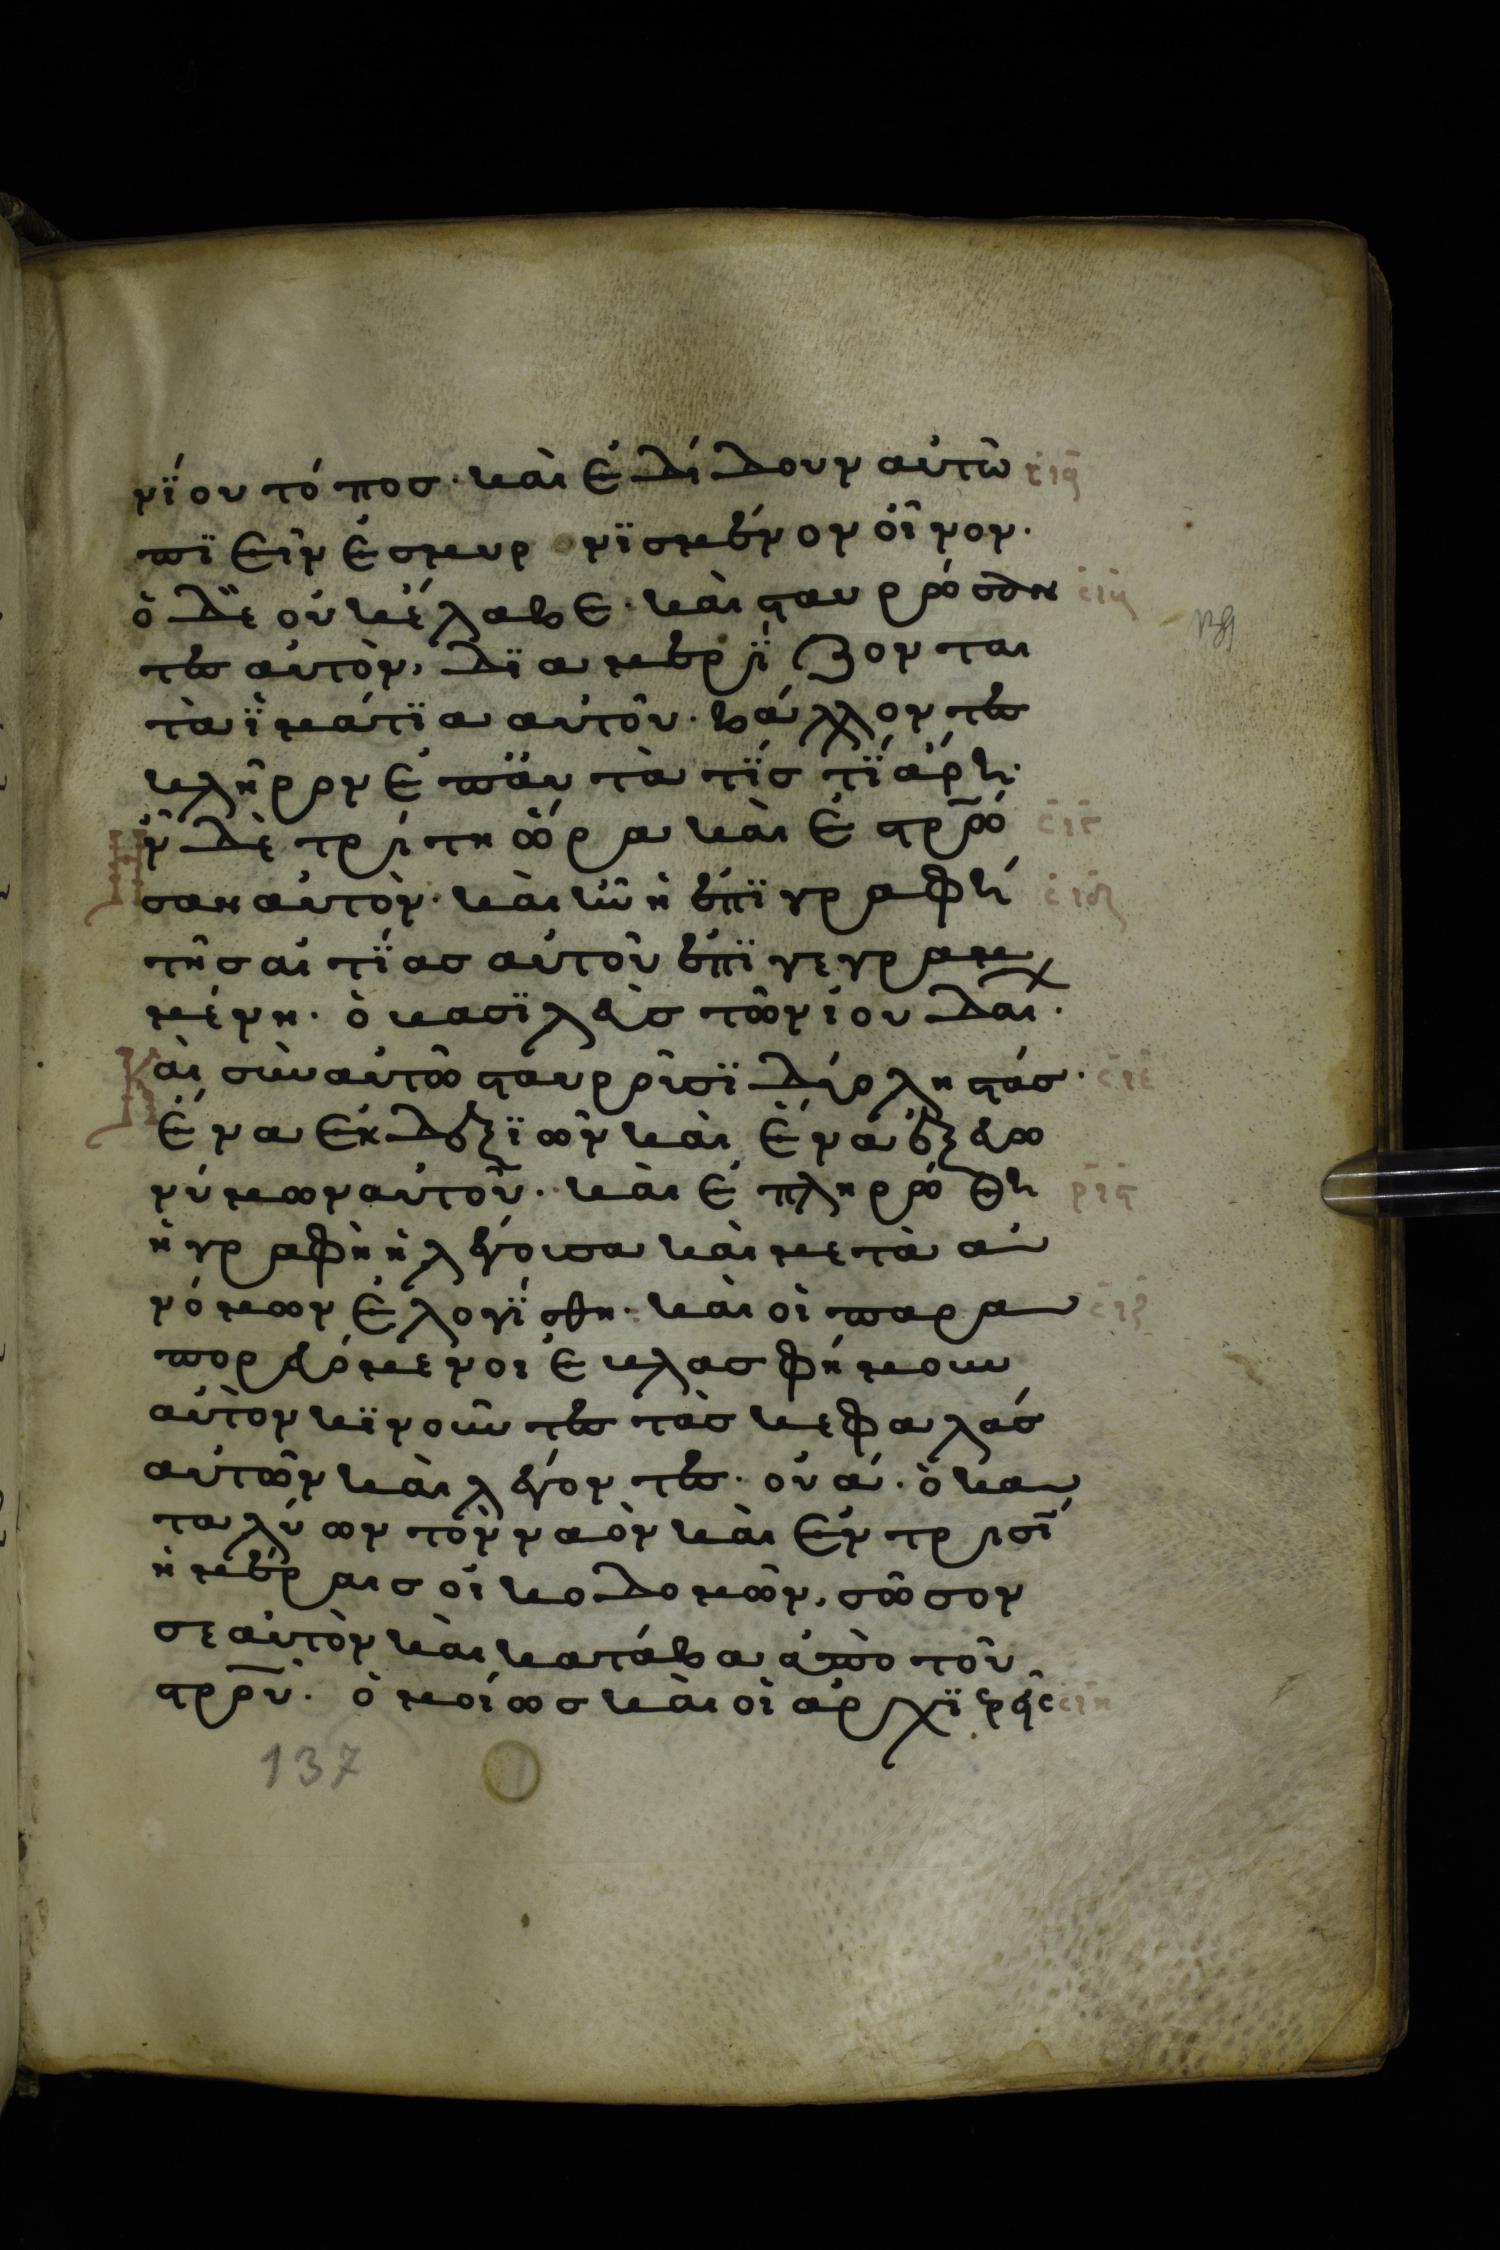 νΐου τόπος· καὶ ἐδίδουν αὐτῶ
πϊεῖν ἐσμυρνϊσμένον οἶνον·
ὁ δὲ οὐκ ἔλαβε· καὶ σταυρρόσαν
τες αὐτὸν, δϊαμερΐζονται
τὰ ἱμάτϊα αὐτοῦ· βάλλοντες
κλῆρρον ἐπ' αὐτὰ τΐς τΐ άρη·
Ἦν δὲ τρίτη ὥρα καὶ ἐστρό
σαν αὐτὸν· καὶ ἦν ἡ ἐπϊγραφή
τῆς αἰτΐας αὐτοῦ ἐπϊγεγραμ
μένη· ὁ βασϊλεὺς τῶν ἰουδαί·
Καὶ σὺν αὐτῶ σταυρροῦσϊ δύο ληστάς·
ἕνα ἐκ δεξϊῶν καὶ ἕνα ἐξ εὐω
νύμων αὐτοῦ· καὶ ἐπληρρόθη
ἡ γραφὴ ἡ λέγουσα καὶ μετὰ ἀ
νόμων ἐλογΐσθη· καὶ οἱ παρα
πορευόμενοι ἐβλασφήμουν
αὐτὸν κϊνοῦντες τὰς κεφαλάς
αὐτῶν καὶ λέγοντες· οὐά· ὁ κα
ταλύων τὸν ναὸν καὶ ἐν τρισΐ
ἡμέραις οἰκοδομῶν, σῶσον
σεαὐτὸν καὶ κατάβα ἀπὸ τοῦ
στρρῦ· ὁμοίως καὶ οἱ ἀρχϊερεῖς
137